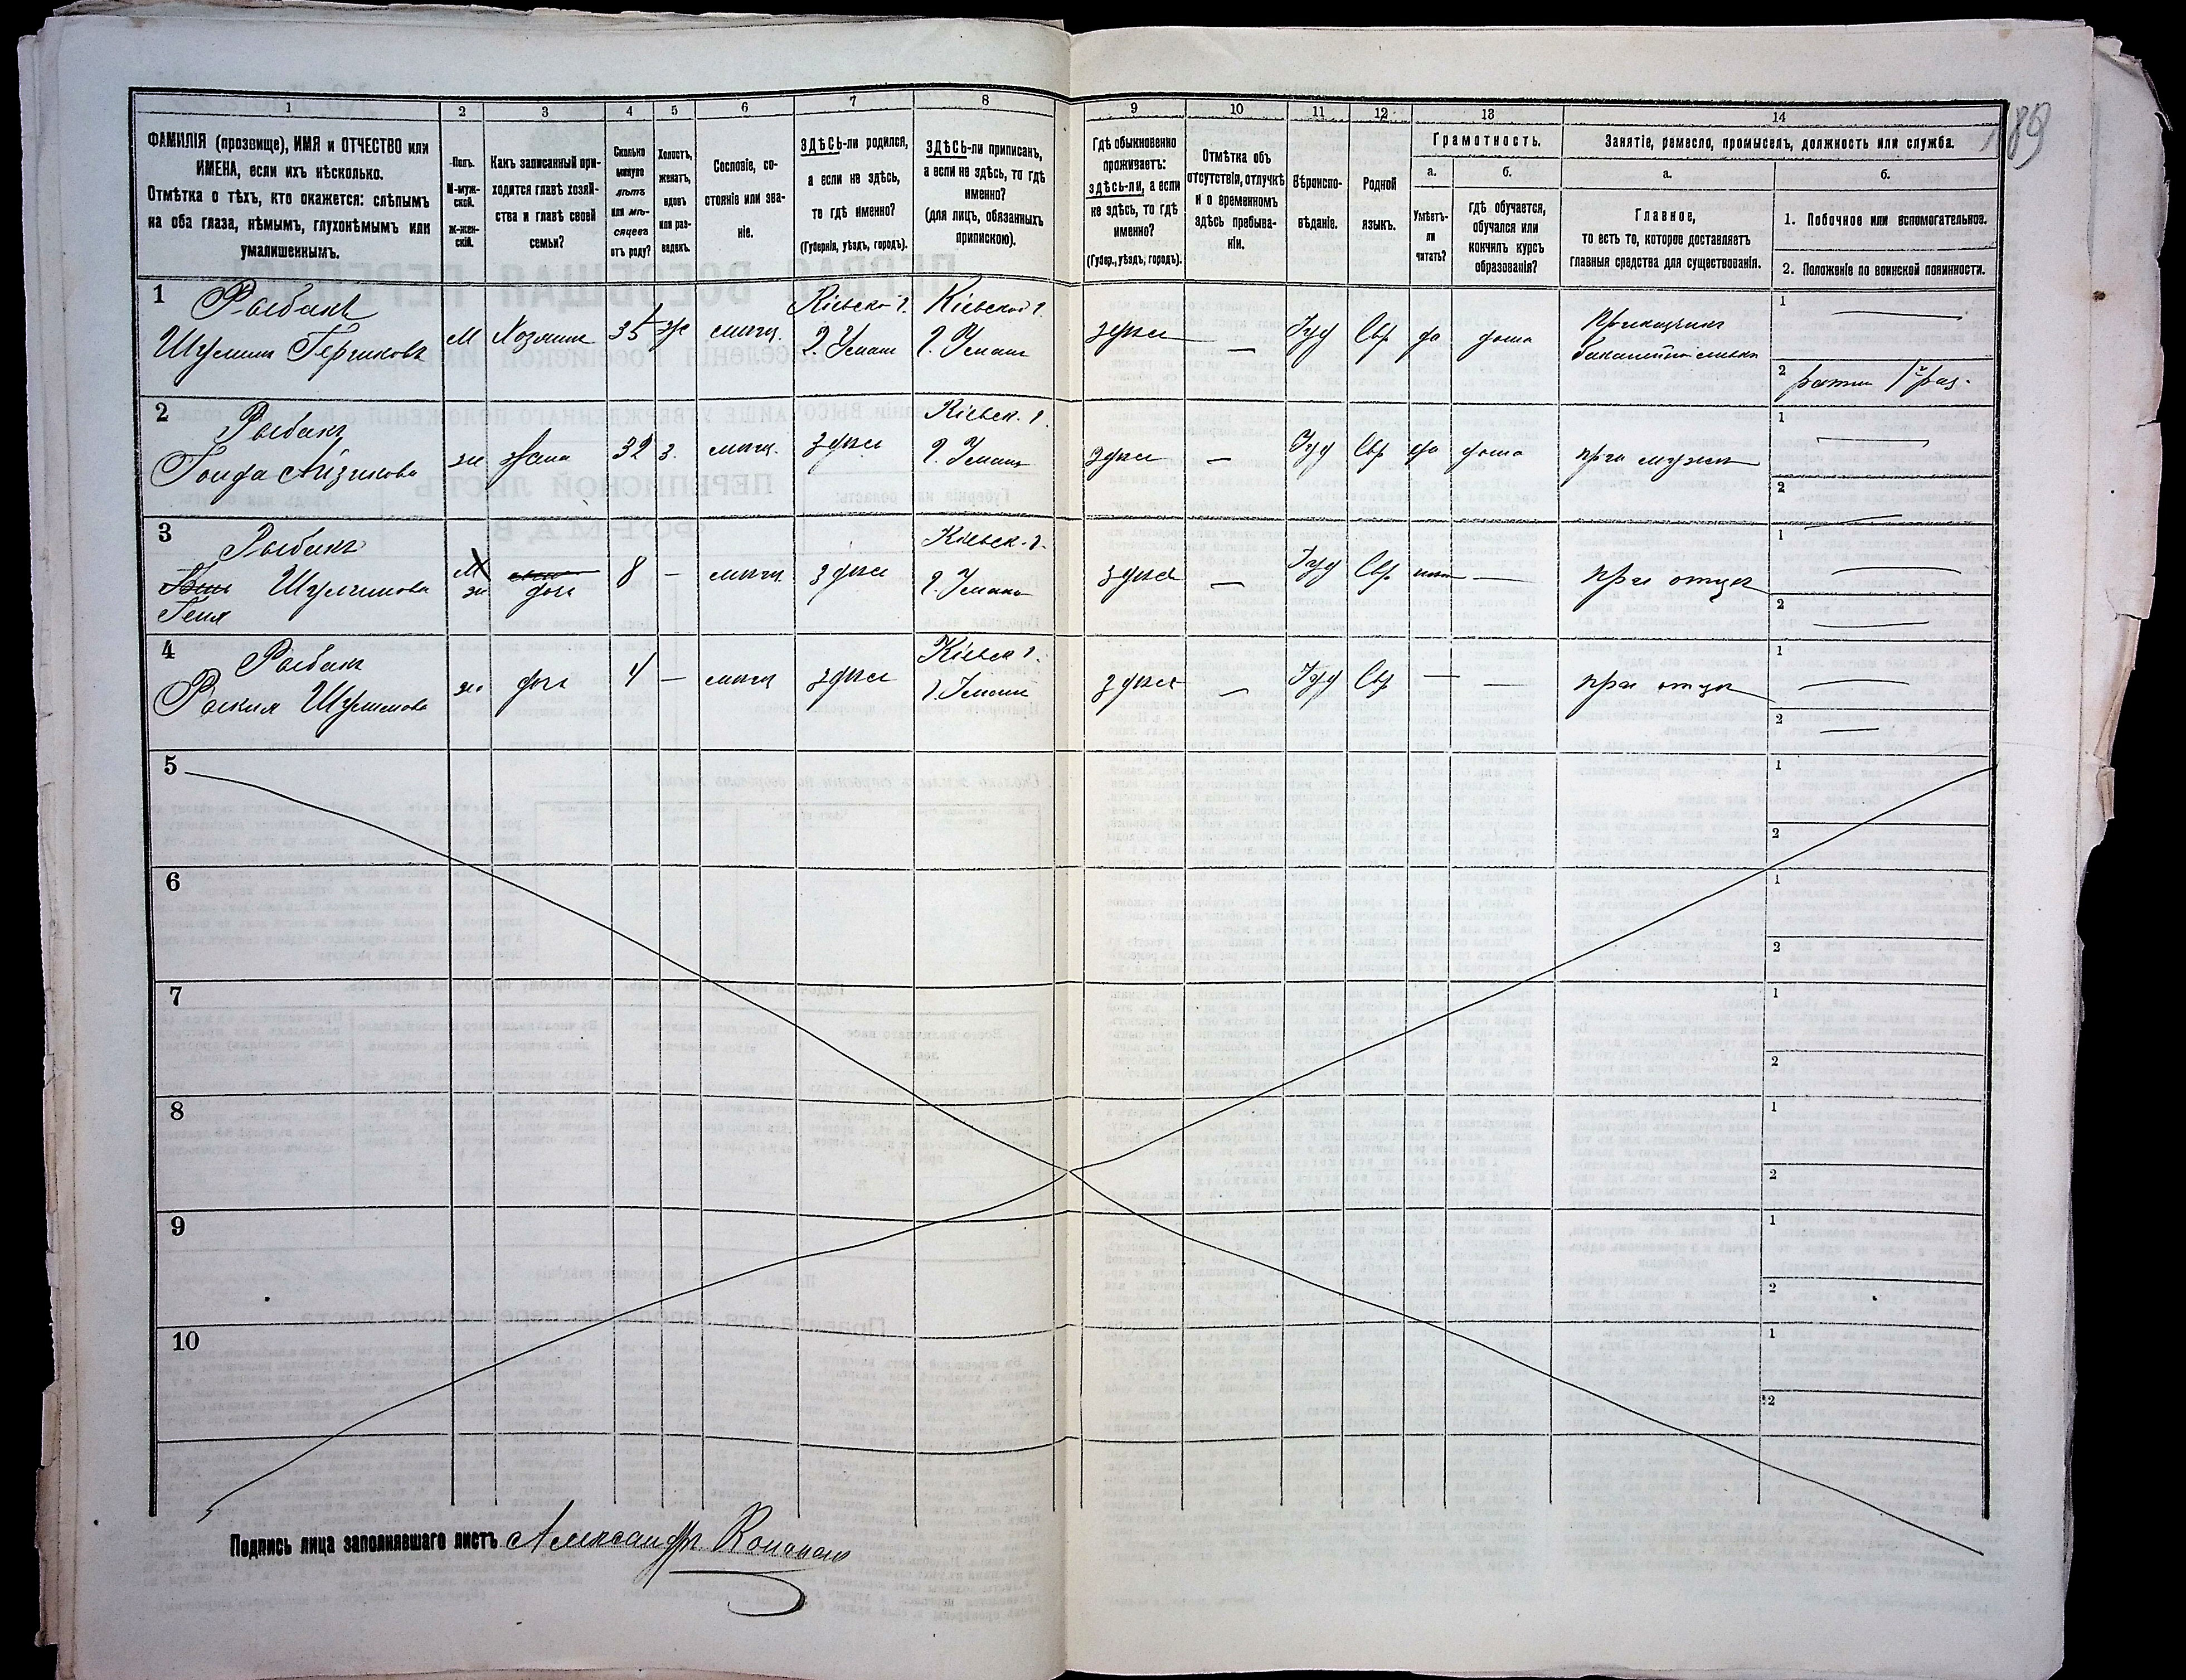 1 2 3 4 5 6 7 8 9 10 11 12 13 14
189
ФАМИЛІЯ (прозвище), ИМЯ и ОТЧЕСТВО или
ИМЕНА, если ихъ нѣсколько.
Отмѣтка о тѣхъ, кто окажется: слѣпымъ
на оба глаза, нѣмымъ, глухонѣмымъ или
умалишеннымъ.
Полъ.
М-муж-
ской.
Ж-жен-
скій.
Какъ записанный при-
ходится главѣ хозяй-
ства и главѣ своей
семьи?
Сколько
минуло
лѣтъ
или мѣ-
сяцевъ
отъ роду?
Холостъ,
женатъ,
вдовъ
или раз-
веденъ.
Сословіе, со-
стояніе или зва-
ніе.
ЗДѢСЬ-ли родился,
а если не здѣсь,
то гдѣ именно?
(Губернія, уѣздъ, городъ).
ЗДѢСЬ-ли приписанъ,
а если не здѣсь, то гдѣ
именно?
(для лицъ, обязанныхъ
припискою).
Гдѣ обыкновенно
проживаетъ:
здѣсь-ли, а если
не здѣсь, то гдѣ
именно?
(Губер., уѣздъ, городъ).
Отмѣтка объ
отсутствіи, отлучкѣ
и о временномъ
здѣсь пребыва-
ніи.
Вѣроиспо-
вѣданіе.
Родной
языкъ.
Грамотность.
а.
Умѣетъ-
ли
читать?
б.
гдѣ обучается,
обучался или
кончилъ курсъ
образованія?
Занятіе, ремесло, промыселъ, должность или служба.
а.
Главное,
то есть то, которое доставляетъ
главныя средства для существованія.
б.
1. Побочное или вспомогательное.
2. Положеніе по воинской повинности.
1 Рыбакъ
Шулимъ Гершковъ
М Хозяинъ 35 ж мѣщ.
Кіевской г.
г. Умань
Кіевской г.
г. Умань
здѣсь — Іуд Евр да дома
Прикащикъ
1 —
2 ратн 1й раз.
2 Рыбакъ
ж жена 32 з. мѣщ. здѣсь
Кіевск. г.
г. Умань
здѣсь — Іуд Евр да дома при мужѣ
1 —
2
3 Рыбакъ
Шулимова
Геня
М
ж
дочь
8 — мѣщ здѣсь
Кіевск. г.
г. Умань
здѣсь — Іуд Евр нѣтъ — при отцѣ
1 —
2 —
4 Рыбакъ
Шулимова
ж дочь 4 — мѣщ здѣсь
Кіевск г.
г. Умань
здѣсь — Іуд Евр — — при отцѣ
1 —
2 —
5 1
2
6 1
2
7 1
2
8 1
2
9 1
2
10 1
2
Подпись лица заполнявшаго листъ Александръ